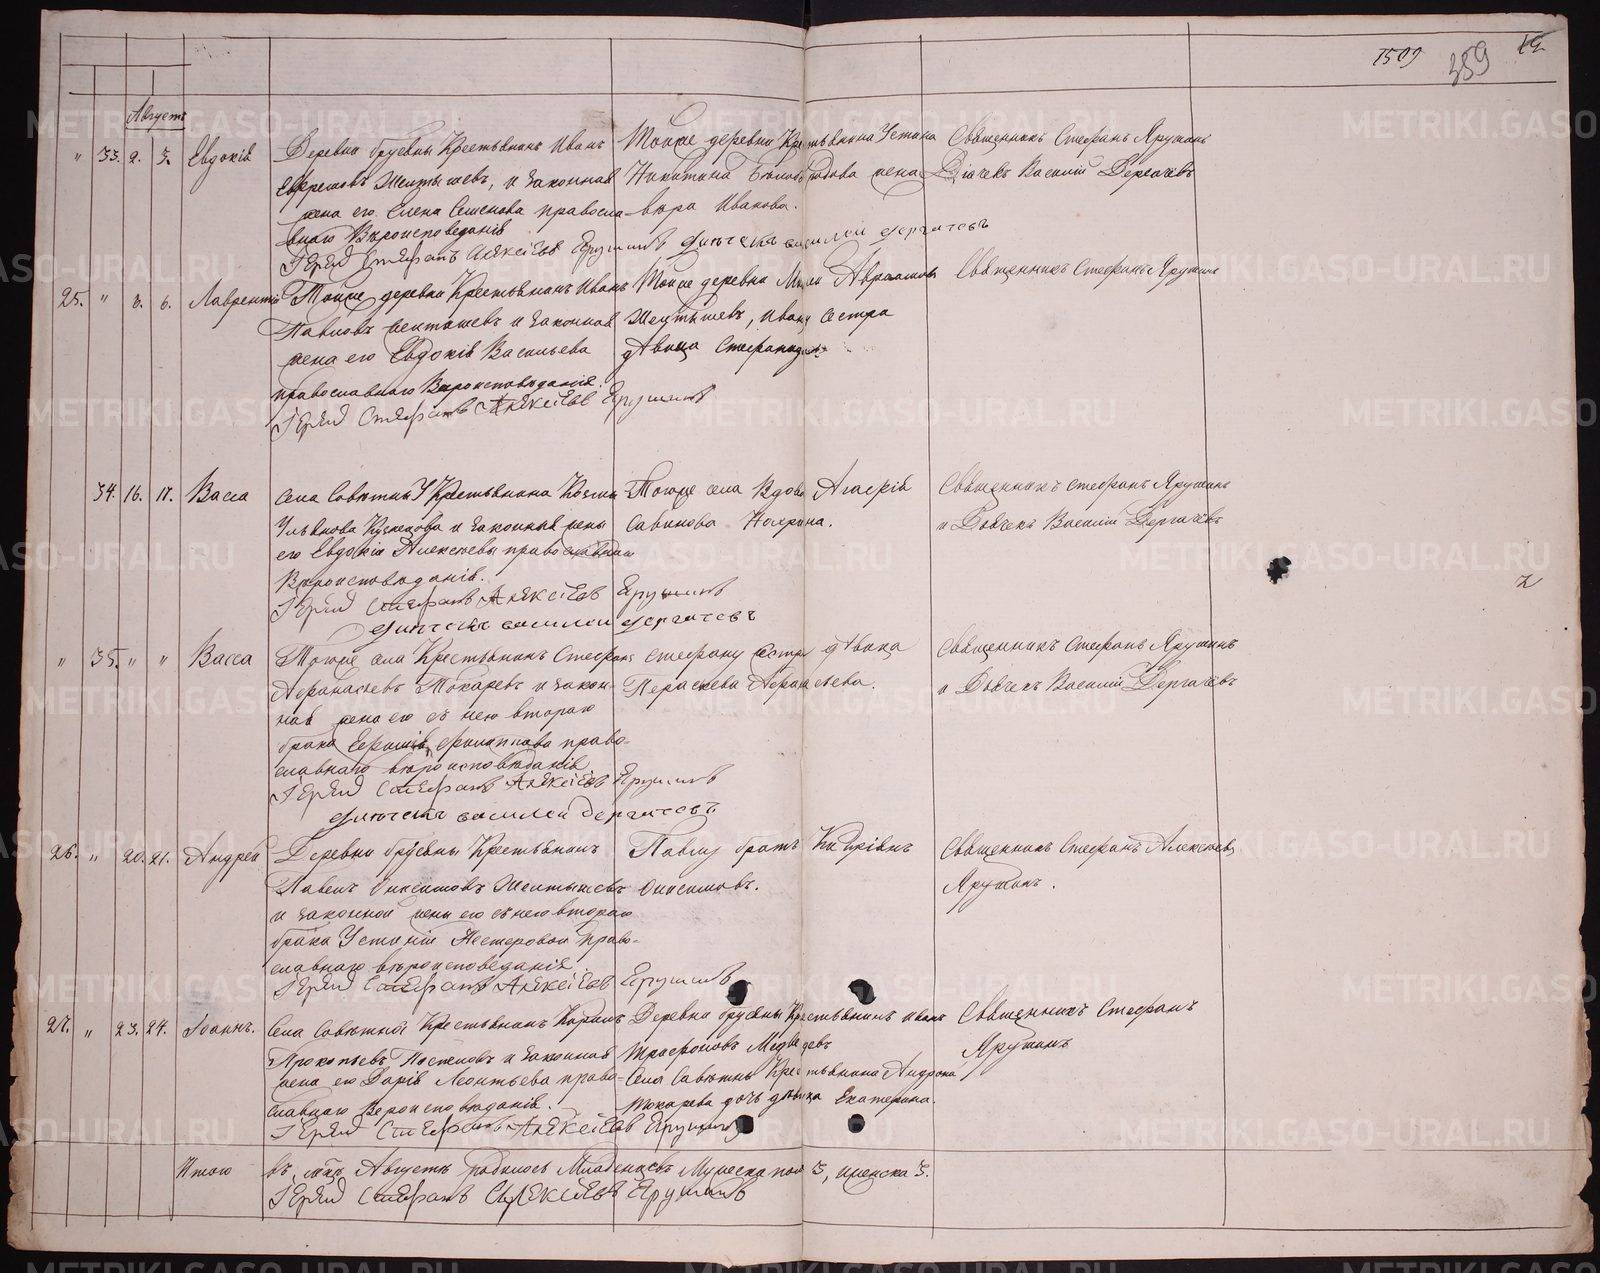 1509 359
Августъ
" 33. 2. 3. Евдокія
Деревни Брусяны Крестьянинъ Иванъ
Ефремовъ Желтышевъ, и законная
жена его Елена Семенова правосла-
внаго Вѣроисповѣданія
Тойже деревни Крестьянина Устина
Никитина жена
вѣра Иванова.
Священникъ Стефанъ Ярушинъ
Дьячекъ Василій Дергачевъ
Іерей Стефанъ Алексіевъ Ерушинъ дьячекъ василей дергачевъ
25. " 3. 6. Лаврентій
Тойже деревни Крестьянинъ Иванъ
Павловъ Желтышевъ и законная
жена его Евдокія Васильева
православнаго Вѣроисповѣданія.
Тойже деревни Авраамовъ
Желтышевъ, Ивана Сестра
дѣвица Стефанида
Священникъ Стефанъ Ярушинъ
Іерей Стефанъ Алексіевъ Ерушинъ
34. 16. 17. Васса
Села Крестьянина Козмы
Ульянова и законныя жены
его Евдокіи Алексѣевы православнаго
Вѣроисповѣданія.
Тогоже села Вдова Агафія
Савинова
Священникъ Стефанъ Ярушинъ
и Дьячекъ Василій Дергачевъ
Іерей Стефанъ Алексіевъ Ерушинъ
дьячекъ василей дергачевъ
" 35. " " Васса
Тогоже села Крестьянинъ Стефанъ
Афанасьевъ Токаревъ и закон-
ная жена его съ нею втораго
брака Ефимія Филиппова право-
славнаго вѣроисповѣданія
Стефану Сестра дѣвица
Параскева Афанасьева.
Священникъ Стефанъ Ярушинъ
и Дьячекъ Василій Дергачевъ
Іерей Стефанъ Алексіевъ Ерушинъ
дьячекъ василей дергачевъ
26. " 20. 21. Андрей
Деревни Брусяны Крестьянинъ
Павелъ Онисимовъ Желтышевъ
и законной жены его съ нею втораго
брака Устиніи Нестеровой право-
славнаго вѣроисповѣданія
Павлу братъ Кипріянъ
Онисимовъ.
Священникъ Стефанъ Алексѣевъ
Ярушинъ.
Іерей Стефанъ Алексіевъ Ерушинъ
27. " 23. 24. Іоаннъ.
Села Крестьянинъ Карпъ
Прокопьевъ и законная
жена его Дарія Леонтьева право-
славнаго Вероисповѣданія.
Деревни Брусяны Крестьянинъ Иванъ
Трифоновъ Медведевъ
Села Крестьянина Андрона
Токарева дочь дѣвица Екатерина.
Священникъ Стефанъ
Ярушинъ
Іерей Стефанъ Алексіевъ Ерушинъ
Итого въ мцѣ Августѣ родилось Младенцевъ Мужеска пола 3, женска 3.
Іерей Стефанъ Алексіевъ Ерушинъ
METRIKI.GASO-URAL.RU